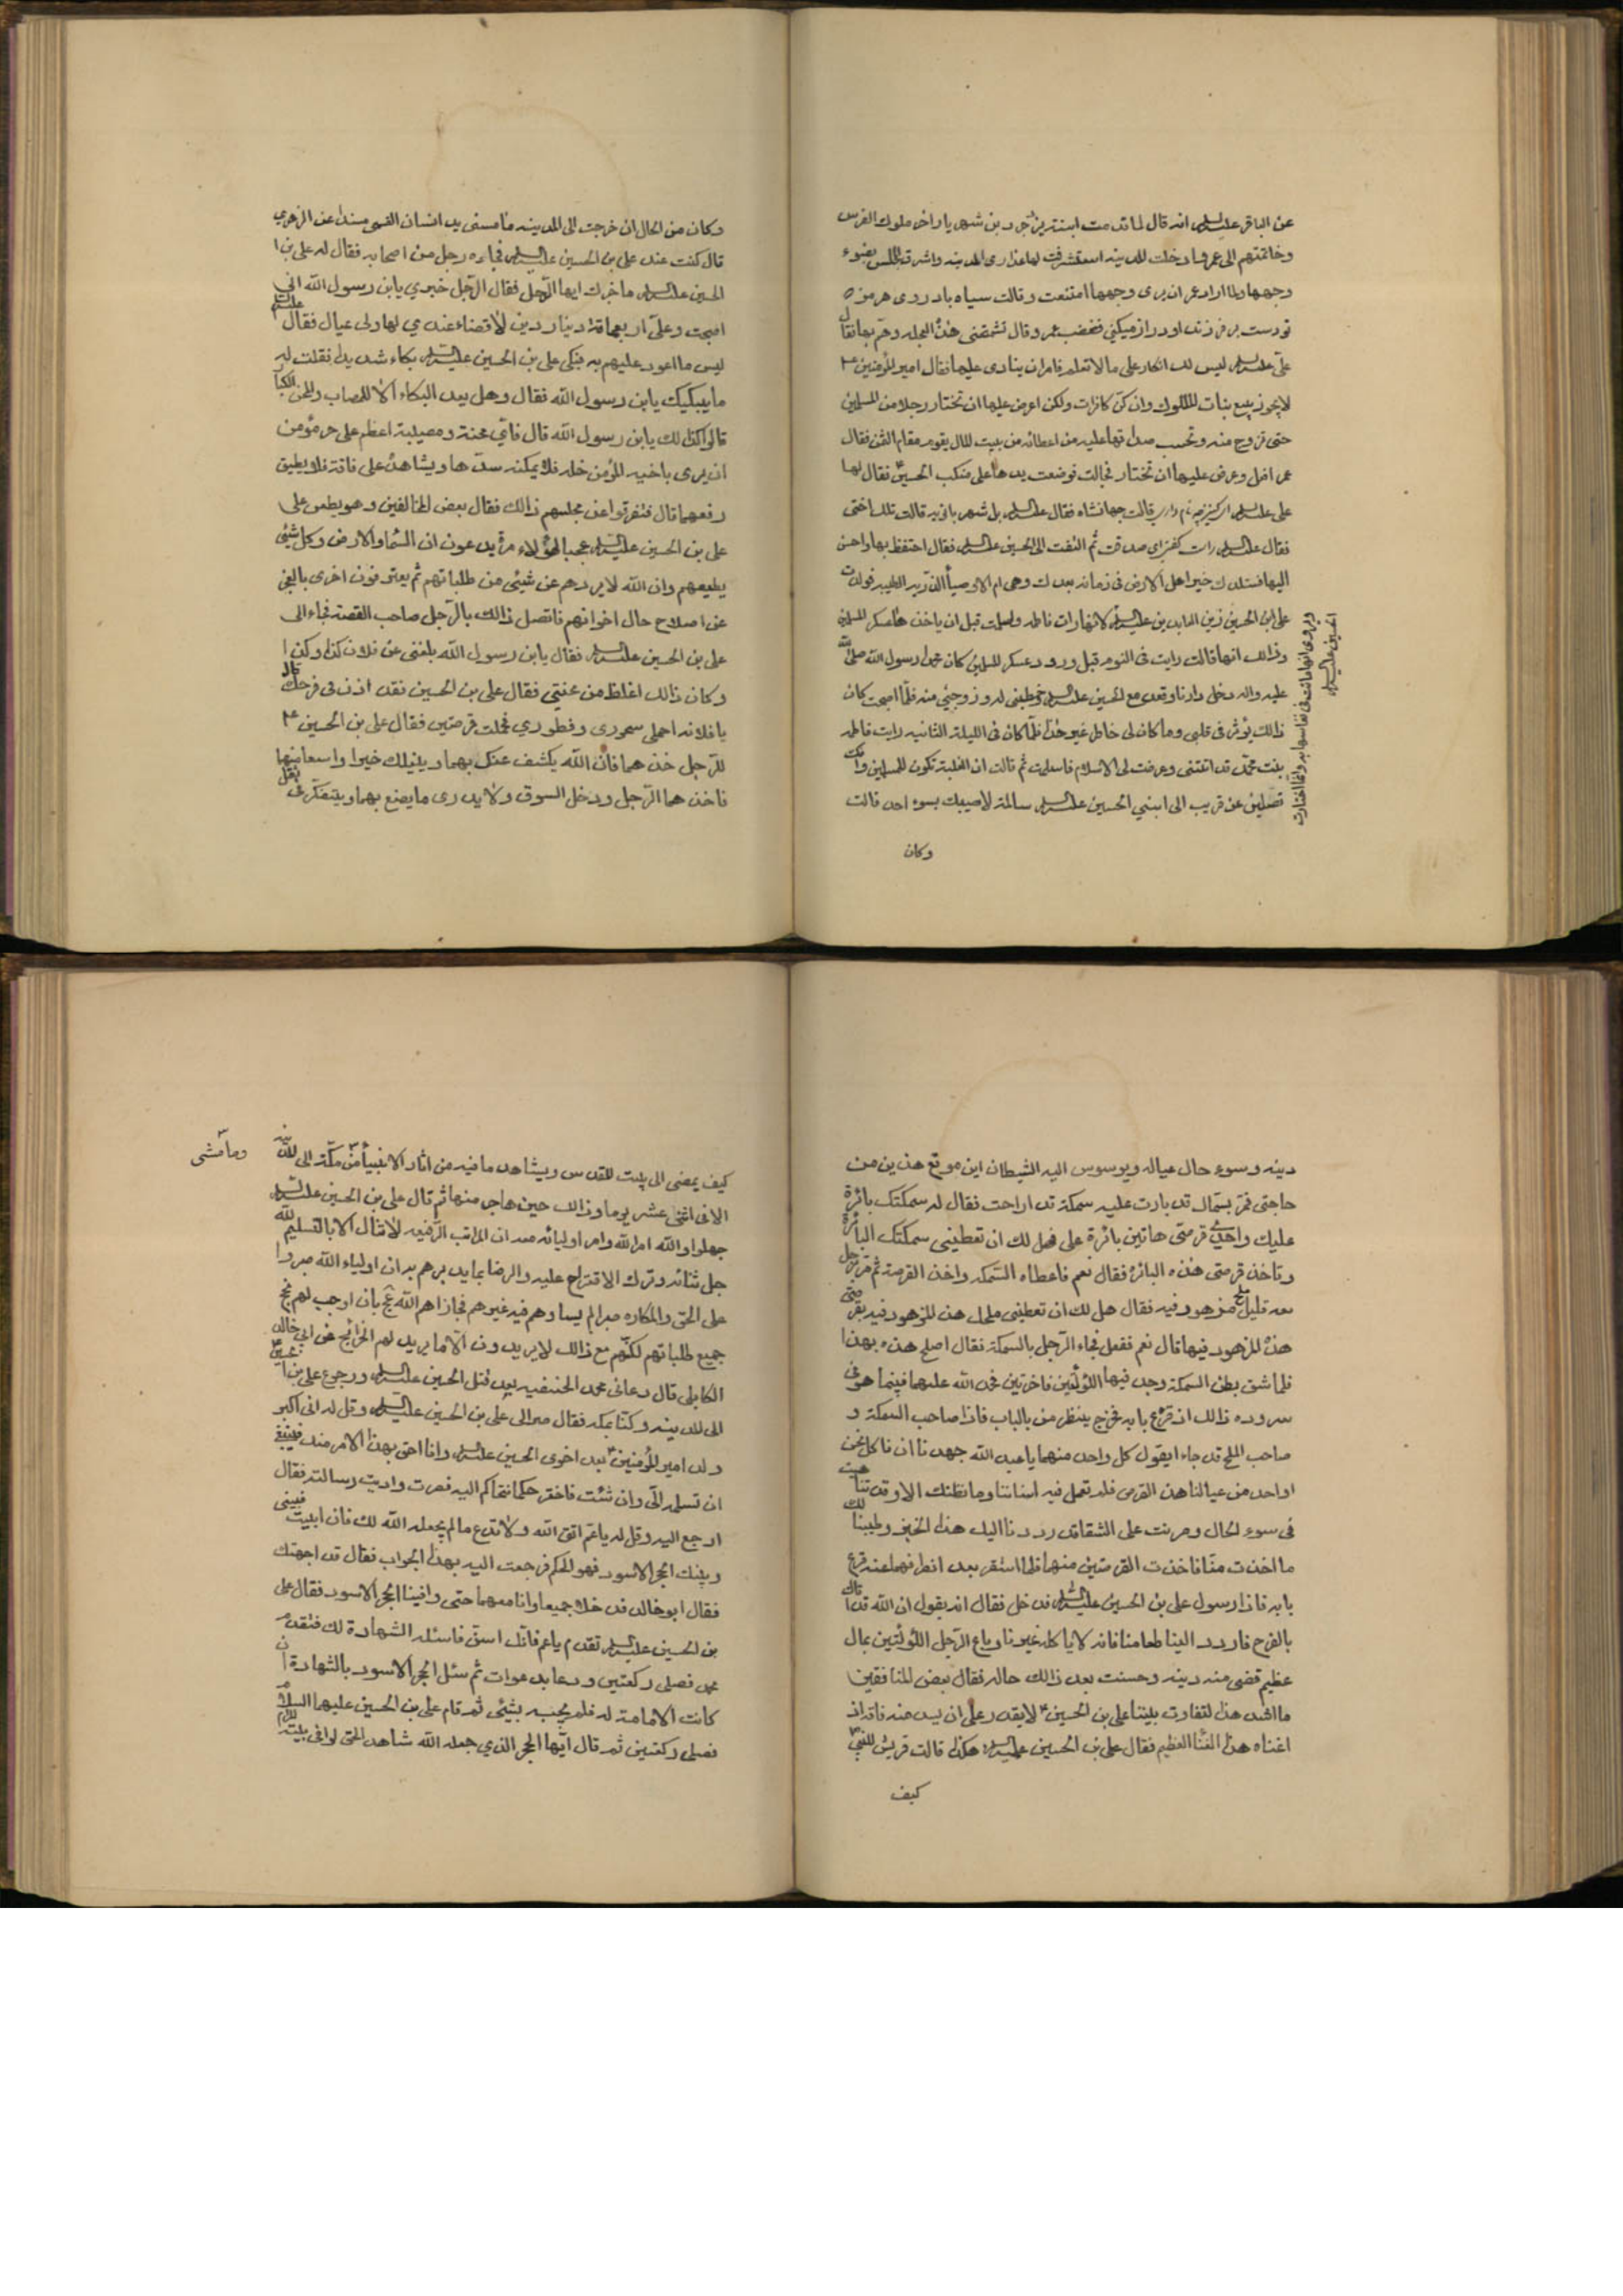 عن الباقر عليه السلم انه قال لما قدمت ابنة يزدجرد بن شهريار اخر ملوك الفرس
وخاتمتهم الى عمر فادخلت المدينه استشرفت لها عذارى المدينه واشرق المجلس بضوء
وجهها ولما اراد عمر ان يرى وجهها امتنعت وقالت سياه باد روى هرمزه
تو دست بر فرزند او دراز ميكني فغضب عمر وقال تشتمني هذه العجله وهم بها فقال
على عليه السلم ليس لك انكار على ما لا تعلم فامر ان ينادى عليها فقال امير المؤمنين ع
لا يجوز بيع بنات الملوك وان كن كافرات ولكن اعرض عليها ان تختار رجلا من المسلمين
حتى تزوج منه وتحسب صداقها عليه من اعطائه من بيت المال يقوم مقام الثمن فقال
عمر افعل وعرض عليها ان تختار فجالت فوضعت يدها على منكب الحسين ع فقال لها
على عليه السلم اى كنيزچه نام دارى قالت جهانشاه فقال عليه السلم بل شهربانويه قالت تلك اختى
فقال عليه السلم راست كفتى اى صدقت ثم التفت الى الحسين عليه السلم فقال احتفظ بها واحسن
اليها فستلد لك خير اهل الارض فى زمانه بعدك وهى ام الاوصياء الذرية الطيبه فولدت
على ابن الحسين زين العابدين عليه السلم لانها رات فاطمه واسلمت قبل ان ياخذها عسكر المسلمين
وذالك انها قالت رايت فى النوم قبل ورود عسكر المسلمين كان محمدا رسول الله صلى الله
عليه واله دخل دارنا وقعد مع الحسين عليه السلم وخطبنى له وزوجني منه فلما اصبحت كان
ذالك يؤثر فى قلبى وما كان لى خاطر غير هذا فلما كان فى الليلة الثانيه رايت فاطمه
بنت محمد قد اتتنى وعرضت لى الاسلام فاسلمت ثم قالت ان الغلبة تكون للمسلمين وانك
تصلين عن قريب الى ابنى الحسين عليه السلم سالمة لا يصيبك بسوء احد قالت
وكان
ويروى انها ماتت فى نفاسها به وانما اختارت
الحسين عليه السلم
وكان من الحال ان خرجت الى المدينه ما مسنى يد انسان القمى مسندا عن الزهرى
قال كنت عند على بن الحسين عليه السلم فجاءه رجل من اصحابه فقال له على بن ا
الحسين عليه السلم ما خبرك ايها الرجل فقال الرجل خبري يابن رسول الله انى
اصبحت وعلى اربعماة دينار دين لا قضاء عندي لها ولى عيال ثقال
ليس ما اعود عليهم به فبكى على بن الحسين عليه السلم بكاء شديدا فقلت له
ما يبكيك يابن رسول الله فقال وهل يعد البكاء الا للمصاب والمحن الكبار
قالوا كذلك يابن رسول الله قال فاي محنة ومصيبة اعظم على حر مؤمن
ان يرى باخيه المؤمن خله فلا يمكنه سدها ويشاهده على فاقة فلا يطيق
رفعها قال فتفرقوا عن مجلسهم ذالك فقال بعض المخالفين وهو يطعن على
على بن الحسين عليه السلم عجبا لهؤلاء مرة يدعون ان السماء والارض وكل شئى
يطيعهم وان الله لا يردهم عن شيئى من طلباتهم ثم يعترفون اخرى بالعجز
عن اصلاح حال اخوانهم فاتصل ذالك بالرجل صاحب القصة فجاء الى
على بن الحسين عليه السلم فقال يابن رسول الله بلغنى عن فلان كذا وكذا
وكان ذالك اغلظ من محنتي فقال على بن الحسين فقد اذن فى فرجك
يا فلانه احملى سحورى وفطوري فحملت قرصتين فقال على بن الحسين ع
للرجل خذهما فان الله يكشف عنك بهما وينيلك خيرا واسعا منهما
فاخذهما الرجل ودخل السوق ولا يدرى ما يصنع بهما ويتفكر فى
دينه وسوء حال عياله ويوسوس اليه الشيطان اين موقع هذين من
حاجتى فمر بسمال قد بارت عليه سمكة قد اراحت فقال له سمكتك بائرة
عليك واحدى قرصتى هاتين بائرة على فهل لك ان تعطينى سمكتك البائرة
وتاخذ قرصتى هذه البائرة فقال نعم فاعطاه السمكه واخذ القرصة ثم مر برجل
معه قليل ملح مزهود فيه فقال هل لك ان تعطينى ملحك هذا المزهود فيه بقرصتى
هذه المزهود فيها قال نعم ففعل فجاء الرجل بالسمكة فقال اصلح هذه بهذا
فلما شق بطن السمكة وجد فيها اللؤلئتين فاخرتين فحمد الله عليهما فبينما هو فى
سروره ذالك اذ قرع بابه فخرج ينظر من بالباب فاذا صاحب السمكة و
صاحب الملح قد جاءا يقول كل واحد منهما يا عبد الله جهدنا ان ناكل نحن
او احد من عيالنا هذا القرص فلم تعمل فيه اسناننا وما نظنك الا وقد تناهيت
فى سوء الحال ومرنت على الشقاء قد رددنا اليك هذا الخبز وطيبنا لك
ما اخذت منا فاخذت القرصتين منهما فلما استقر بعد انصرافهما عنه قرع
بابه فاذا رسول على بن الحسين عليه السلم فدخل فقال انه يقول ان الله قد اتاك
بالفرج فاردد الينا طعامنا فانه لا ياكله غيرنا وباع الرجل اللؤلئتين بمال
عظيم قضى منه دينه وحسنت بعد ذالك حاله فقال بعض المنافقين
ما اشد هذا التفاوت بينا على بن الحسين ع لا يقدر على ان يسد منه فاقة اذ
اغناه هذا الغناء العظيم فقال على بن الحسين عليه السلم هكذا قالت قريش للنبى
كيف
كيف يمضى الى بيت المقدس ويشاهد ما فيه من اثار الانبياء من مكة الى المدينه
وما مشى
الا فى اثنى عشر يوما وذالك حين هاجر منها ثم قال على بن الحسين عليه السلم
جهلوا والله امر الله وامر اوليائه معه ان المراتب الرفيعه لا تنال الا بالتسليم لله
جل ثنائه وترك الاقتراح عليه والرضا بما يدبرهم به ان اولياء الله صبروا
على المحن والمكاره صبرا لم يساوهم فيه غيرهم فجازاهم الله عج بان اوجب لهم نجح
جميع طلباتهم لكنهم مع ذالك لا يريدون الا ما يريد لهم الخرائج عن ابى خالد
الكابلى قال دعانى محمد الحنفيه بعد قتل الحسين عليه السلم ورجوع على بن الحسين
الى المدينه وكنا بمكه فقال صر الى على بن الحسين عليه السلم وقل له انى اكبر
ولد امير المؤمنين بعد اخوى الحسين عليه السلم وانا احق بهذا الامر منك فينبغى
ان تسلمه الى وان شئت فاختر حكما نتحاكم اليه فصرت واديت رسالته فقال
ارجع اليه وقل له يا عم اتق الله ولا تدع ما لم يجعله الله لك فان ابيت فبينى
وبينك الحجر الاسود فهو الحكم فرجعت اليه بهذا الجواب فقال قد اجبتك
فقال ابو خالد فدخلا جميعا وانا معهما حتى وافينا الحجر الاسود فقال على
بن الحسين عليه السلم تقدم يا عم فانك اسن فاسئله الشهادة لك فتقدم
محمد فصلى ركعتين ودعا بدعوات ثم سئل الحجر الاسود بالشهادة ان
كانت الامامة له فلم يجبه بشيئى ثم قام على بن الحسين عليهما السلم
فصلى ركعتين ثم قال ايها الحجر الذي جعله الله شاهدا لمن يوافى بيته